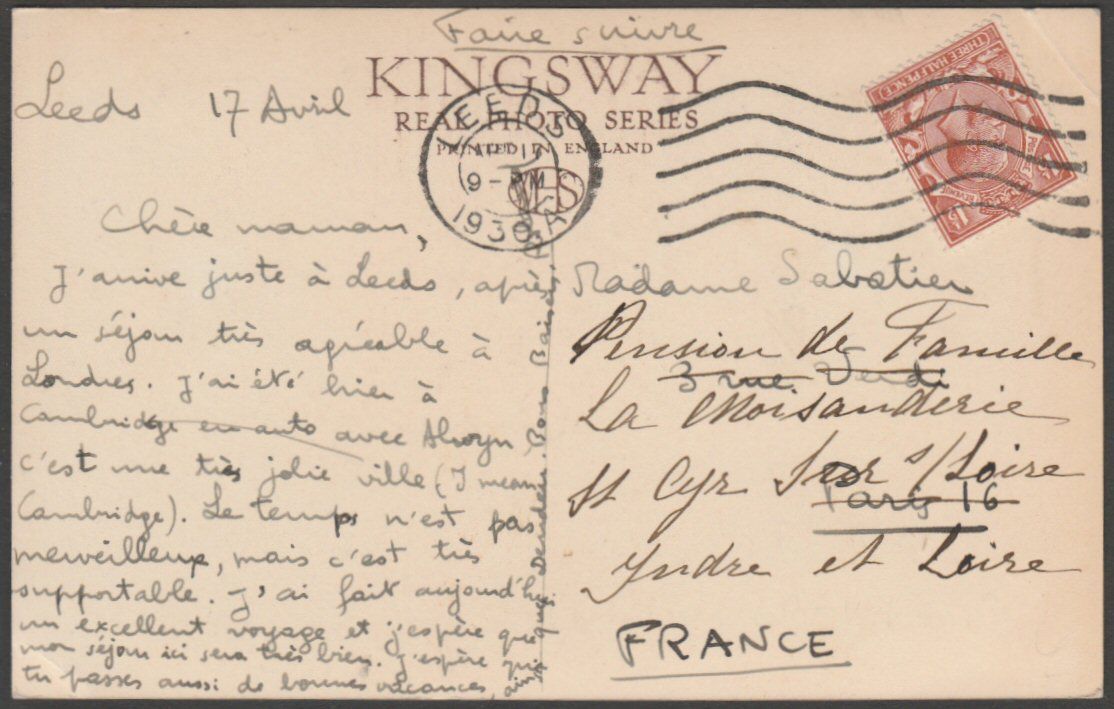 Faire suivre
KINGSWAY
REAL PHOTO SERIES
PRINTED IN ENGLAND
WHS
LEEDS
9- PM
1930
A
THREE HALF PENCE
Leeds 17 Avril
Chère maman,
J'arrive juste à Leeds, après
un séjour très agréable à
Londres. J'ai été hier à
Cambridge en auto avec Alwyn
c'est une très jolie ville (I mean
Cambridge). Le temps n'est pas
merveilleux, mais c'est très
supportable. J'ai fait aujourd'hui
un excellent voyage et j'espère que
mon séjour ici sera très bien. J'espère que
tu passes aussi de bonnes vacances, ainsi
que Bons Baisers
Madame Sabatier
Pension de Famille
3 rue Verdi
La Moisanderie
St Cyr Sur s/Loire
Paris 16
Yndre et Loire
FRANCE